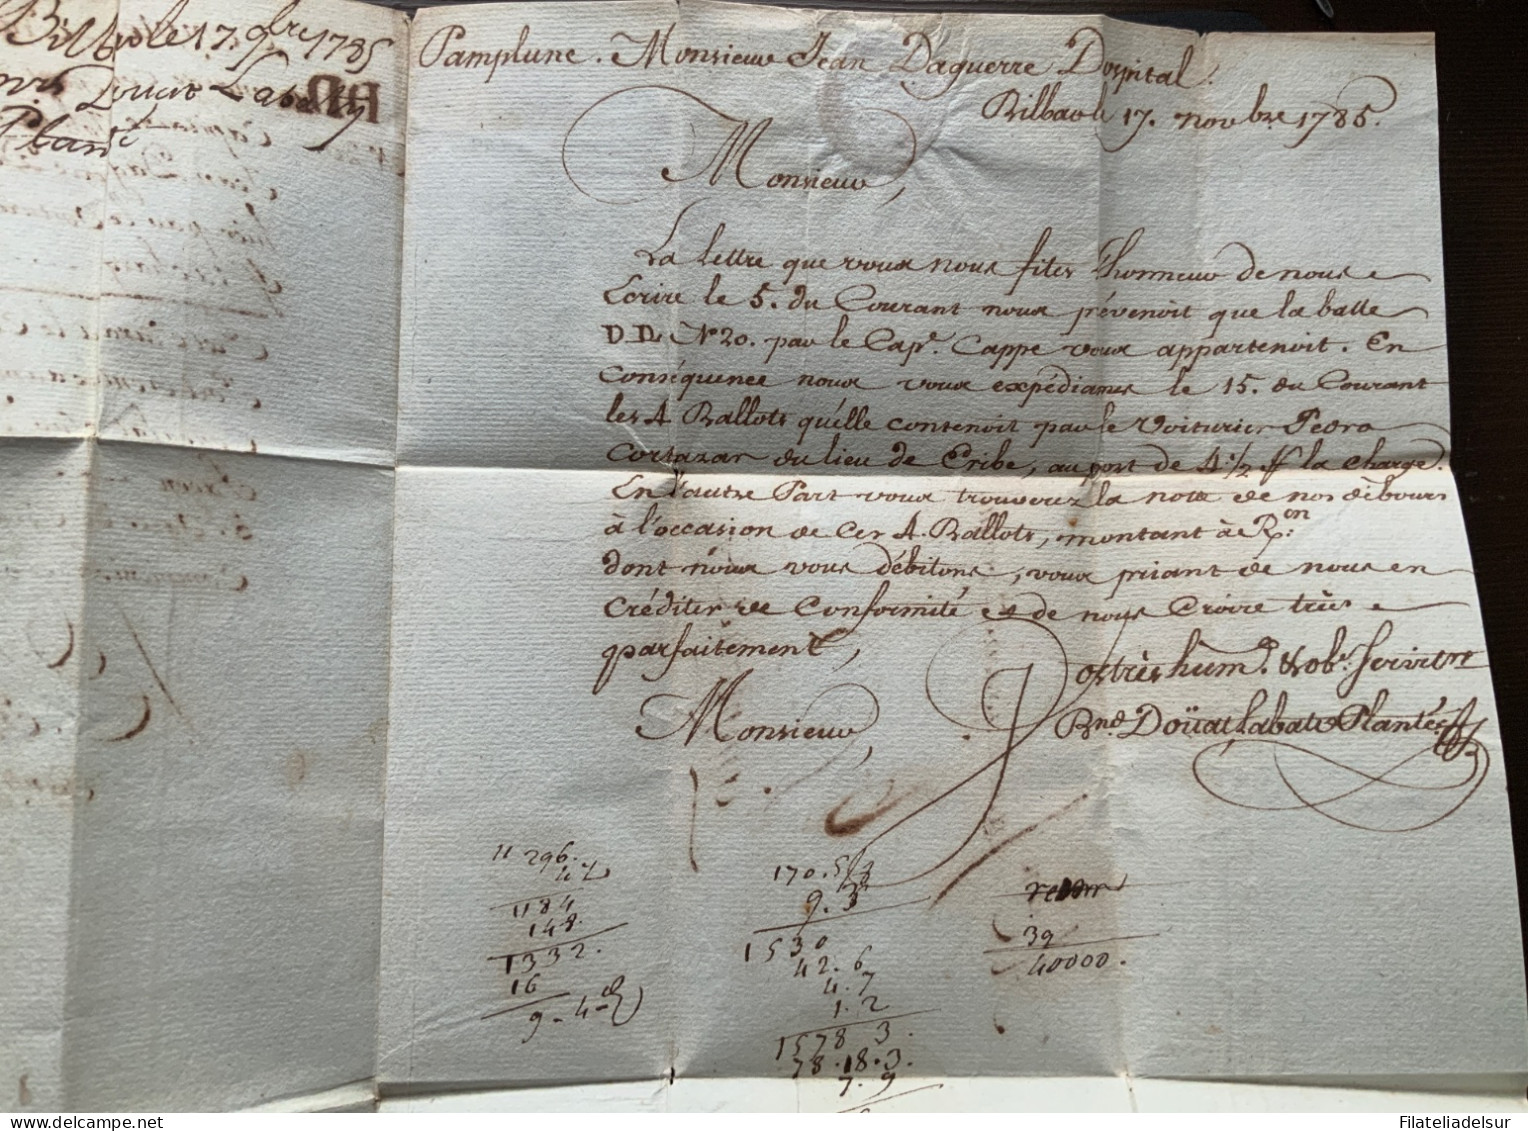 Bilbao le 17. 9bre 1785
Douat Labat
Plant
Pamplune. Monsieur Jean Daguerre Dospital.
Bilbao le 17. novbre 1785.
Monsieur,
La lettre que vous nous fites l'honneur de nous
Ecrire le 5. du Courant nous prévenoit que la balle
D.D. N.º 20. par le Capº. Cappe vous appartenoit. En
conséquence nous vous expédiames le 15. du Courant
les 4 Ballots qu'elle contenoit par le Voiturier Pedro
Cortazar du lieu de Eribe, au port de 4.1/2 ff la charge.
En l'autre Part vous trouverez la note de nos débours
à l'occasion de Ces 4. Ballots, montant à Ron.
dont nous vous débitons, vous priant de nous en
Créditer de Conformité et de nous Croire très
parfaitement,
Vos très hum. & ob. Servit
Monsieur,
Bnd. Doüat Labat & Planté
11 296.
1184
148.
1332.
16
9 - 4 -
170. 5
9. 3
1530
42. 6
4. 7
1. 2
1578 3.
78. 18. 3.
7. 9
39
40000.
Filateliadelsur